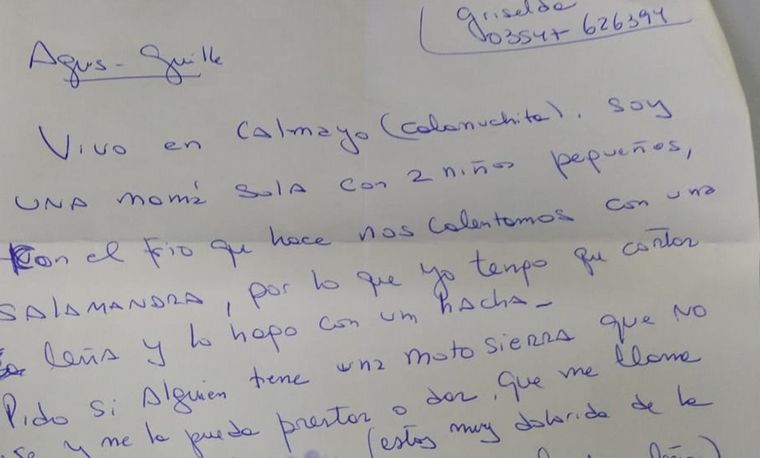 Griselda
03547 626394
Agus - Guille
Vivo en Calmayo (Calamuchita). Soy
UNA mamá sola con 2 niños pequeños,
Con el frio que hace nos calentamos con una
SALAMANDRA, por lo que yo tengo que cortar
la leña y lo hago con un hacha -
Pido si alguien tiene una motosierra que NO
use y me la pueda prestar o dar, que me llame
(estoy muy dolorida de la